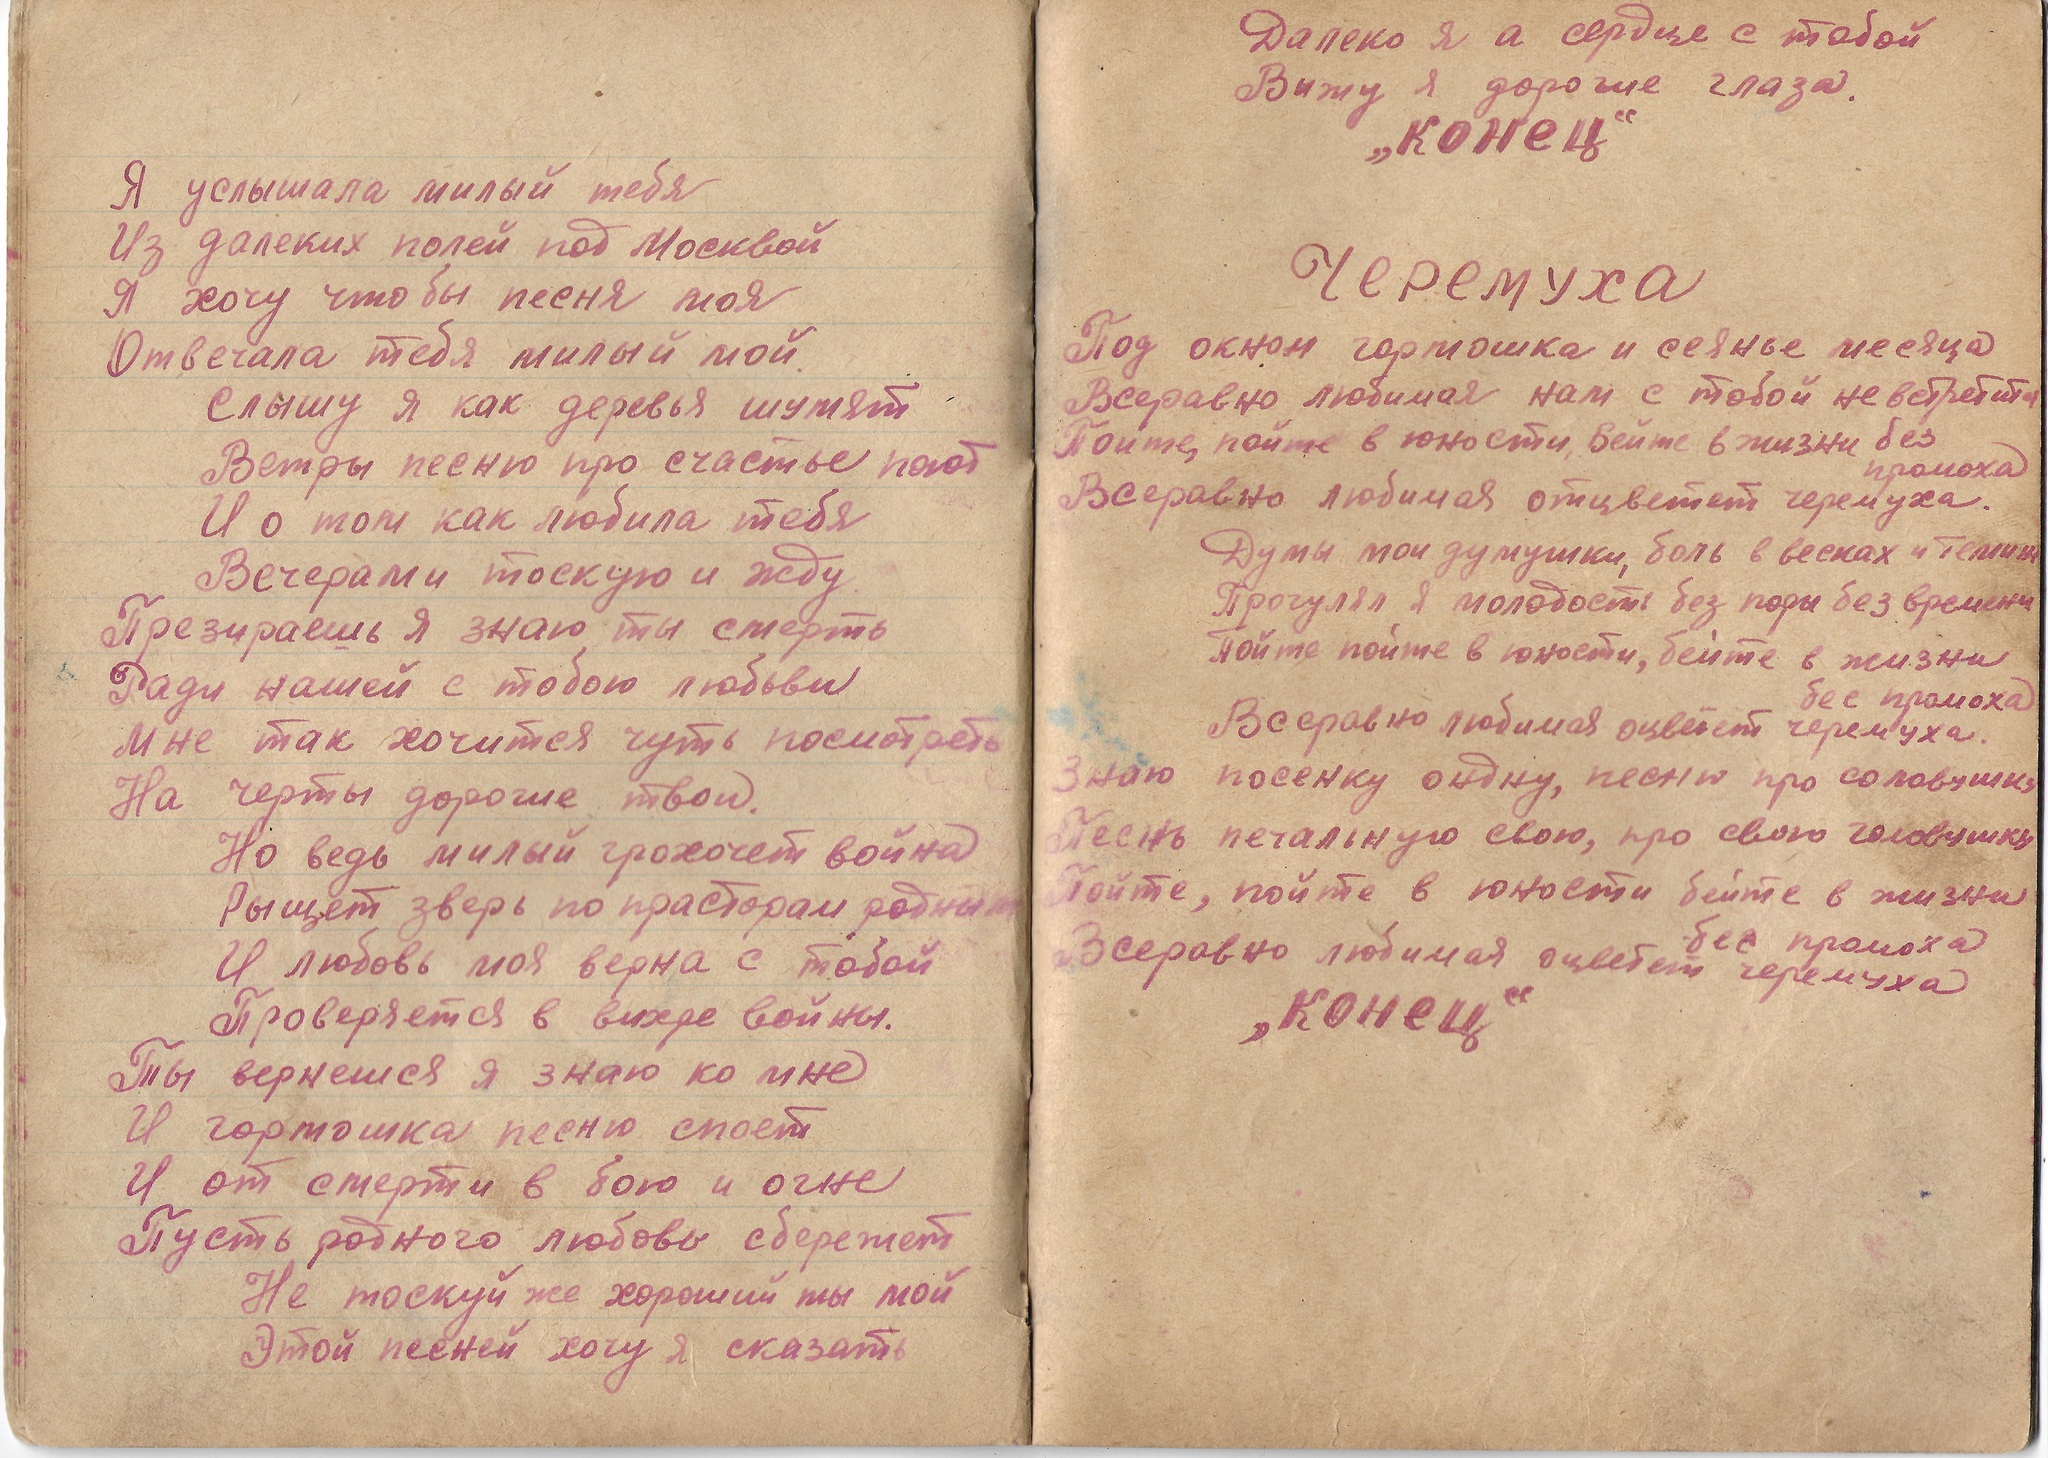 Я услышала милый тебя
Из далеких полей под Москвой
Я хочу что бы песня моя
Отвечала тебя милый мой.
Слышу я как деревья шумят
Ветры песню про счастье поют
И о том как любила тебя
Вечерами тоскую и жду.
Презираешь я знаю ты смерть
Ради нашей с тобою любьви
Мне так хочится чуть посмотреть
На черты дорогие твои.
Но ведь милый грохочет война
Рыщет зверь по прасторам родным
И любовь моя верна с тобой
Проверяется в вихре войны.
Ты вернешся я знаю ко мне
И гормошка песню споет
И от смерти в бою и огне
Пусть родного любовь сбережет
Не тоскуй же хороший ты мой
Этой песней хочу я сказать
Далеко я а сердце с тобой
Вижу я дорогие глаза.
„Конец“
Черемуха
Под окном гормошка и сеянье месяца
Всеравно любимая нам с тобой не встретится
Пойте, пойте в юности, бейте в жизни без
промоха
Всеравно любимая отцветет черемуха.
Думы мои думушки, боль в весках и темени
Прогулял я молодость без поры без времени
Пойте пойте в юности, бейте в жизни
бес промоха
Всеравно любимая оцветет черемуха.
Знаю посенку одну, песню про соловушку
Песнь печальную свою, про свою головушку
Пойте, пойте в юности бейте в жизни
бес промоха
Всеравно любимая оцветет черемуха
„Конец“